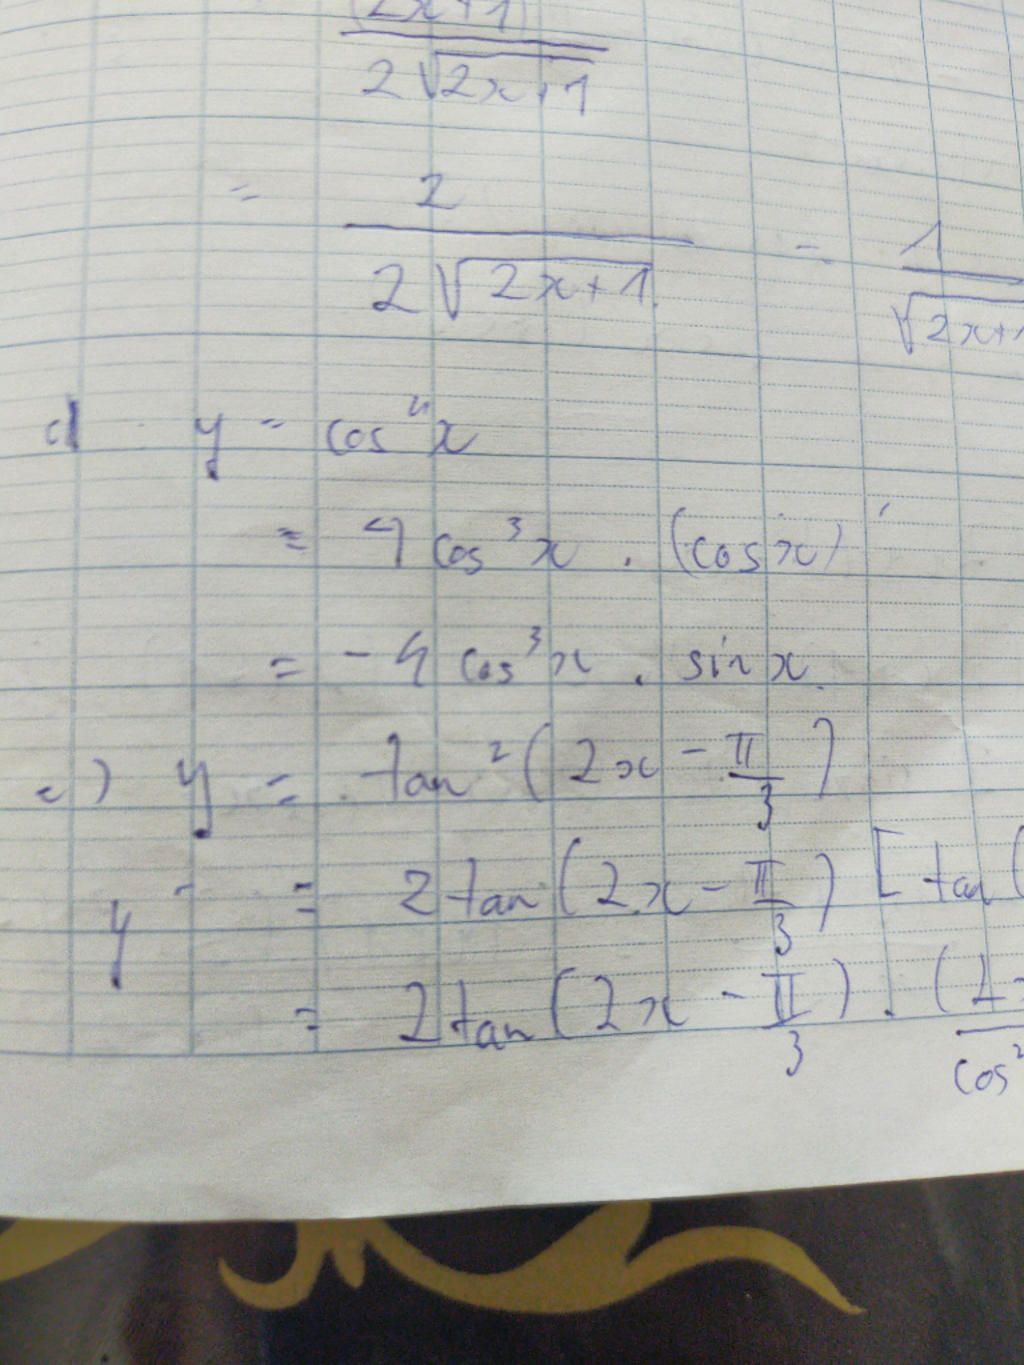 (2x+1)
2√2x+1
= 2 / 2√2x+1 = 1 / √2x+1
d y = cos⁴x
= 4 cos³x . (cos x)'
= -4 cos³x . sin x.
) y = tan²(2x - π/3)
y' = 2 tan(2x - π/3) [tan(
= 2 tan(2x - π/3) . (2x / cos²